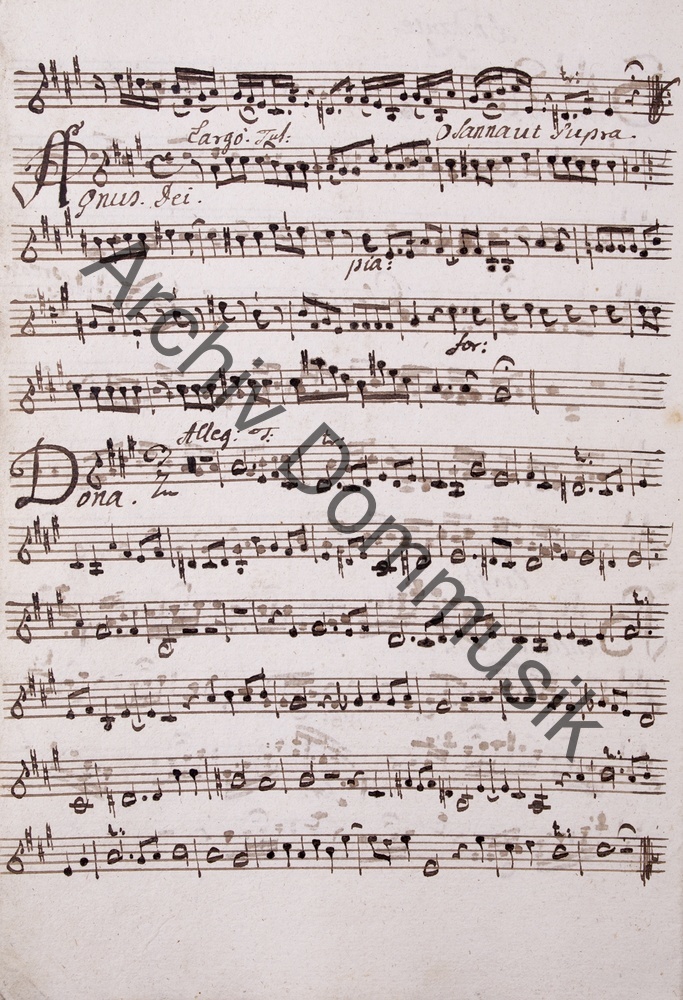 Largo. Tut:
Osanna ut Supra.
Agnus Dei.
pia:
for:
Alleg: T:
Dona.
Archiv Dommusik